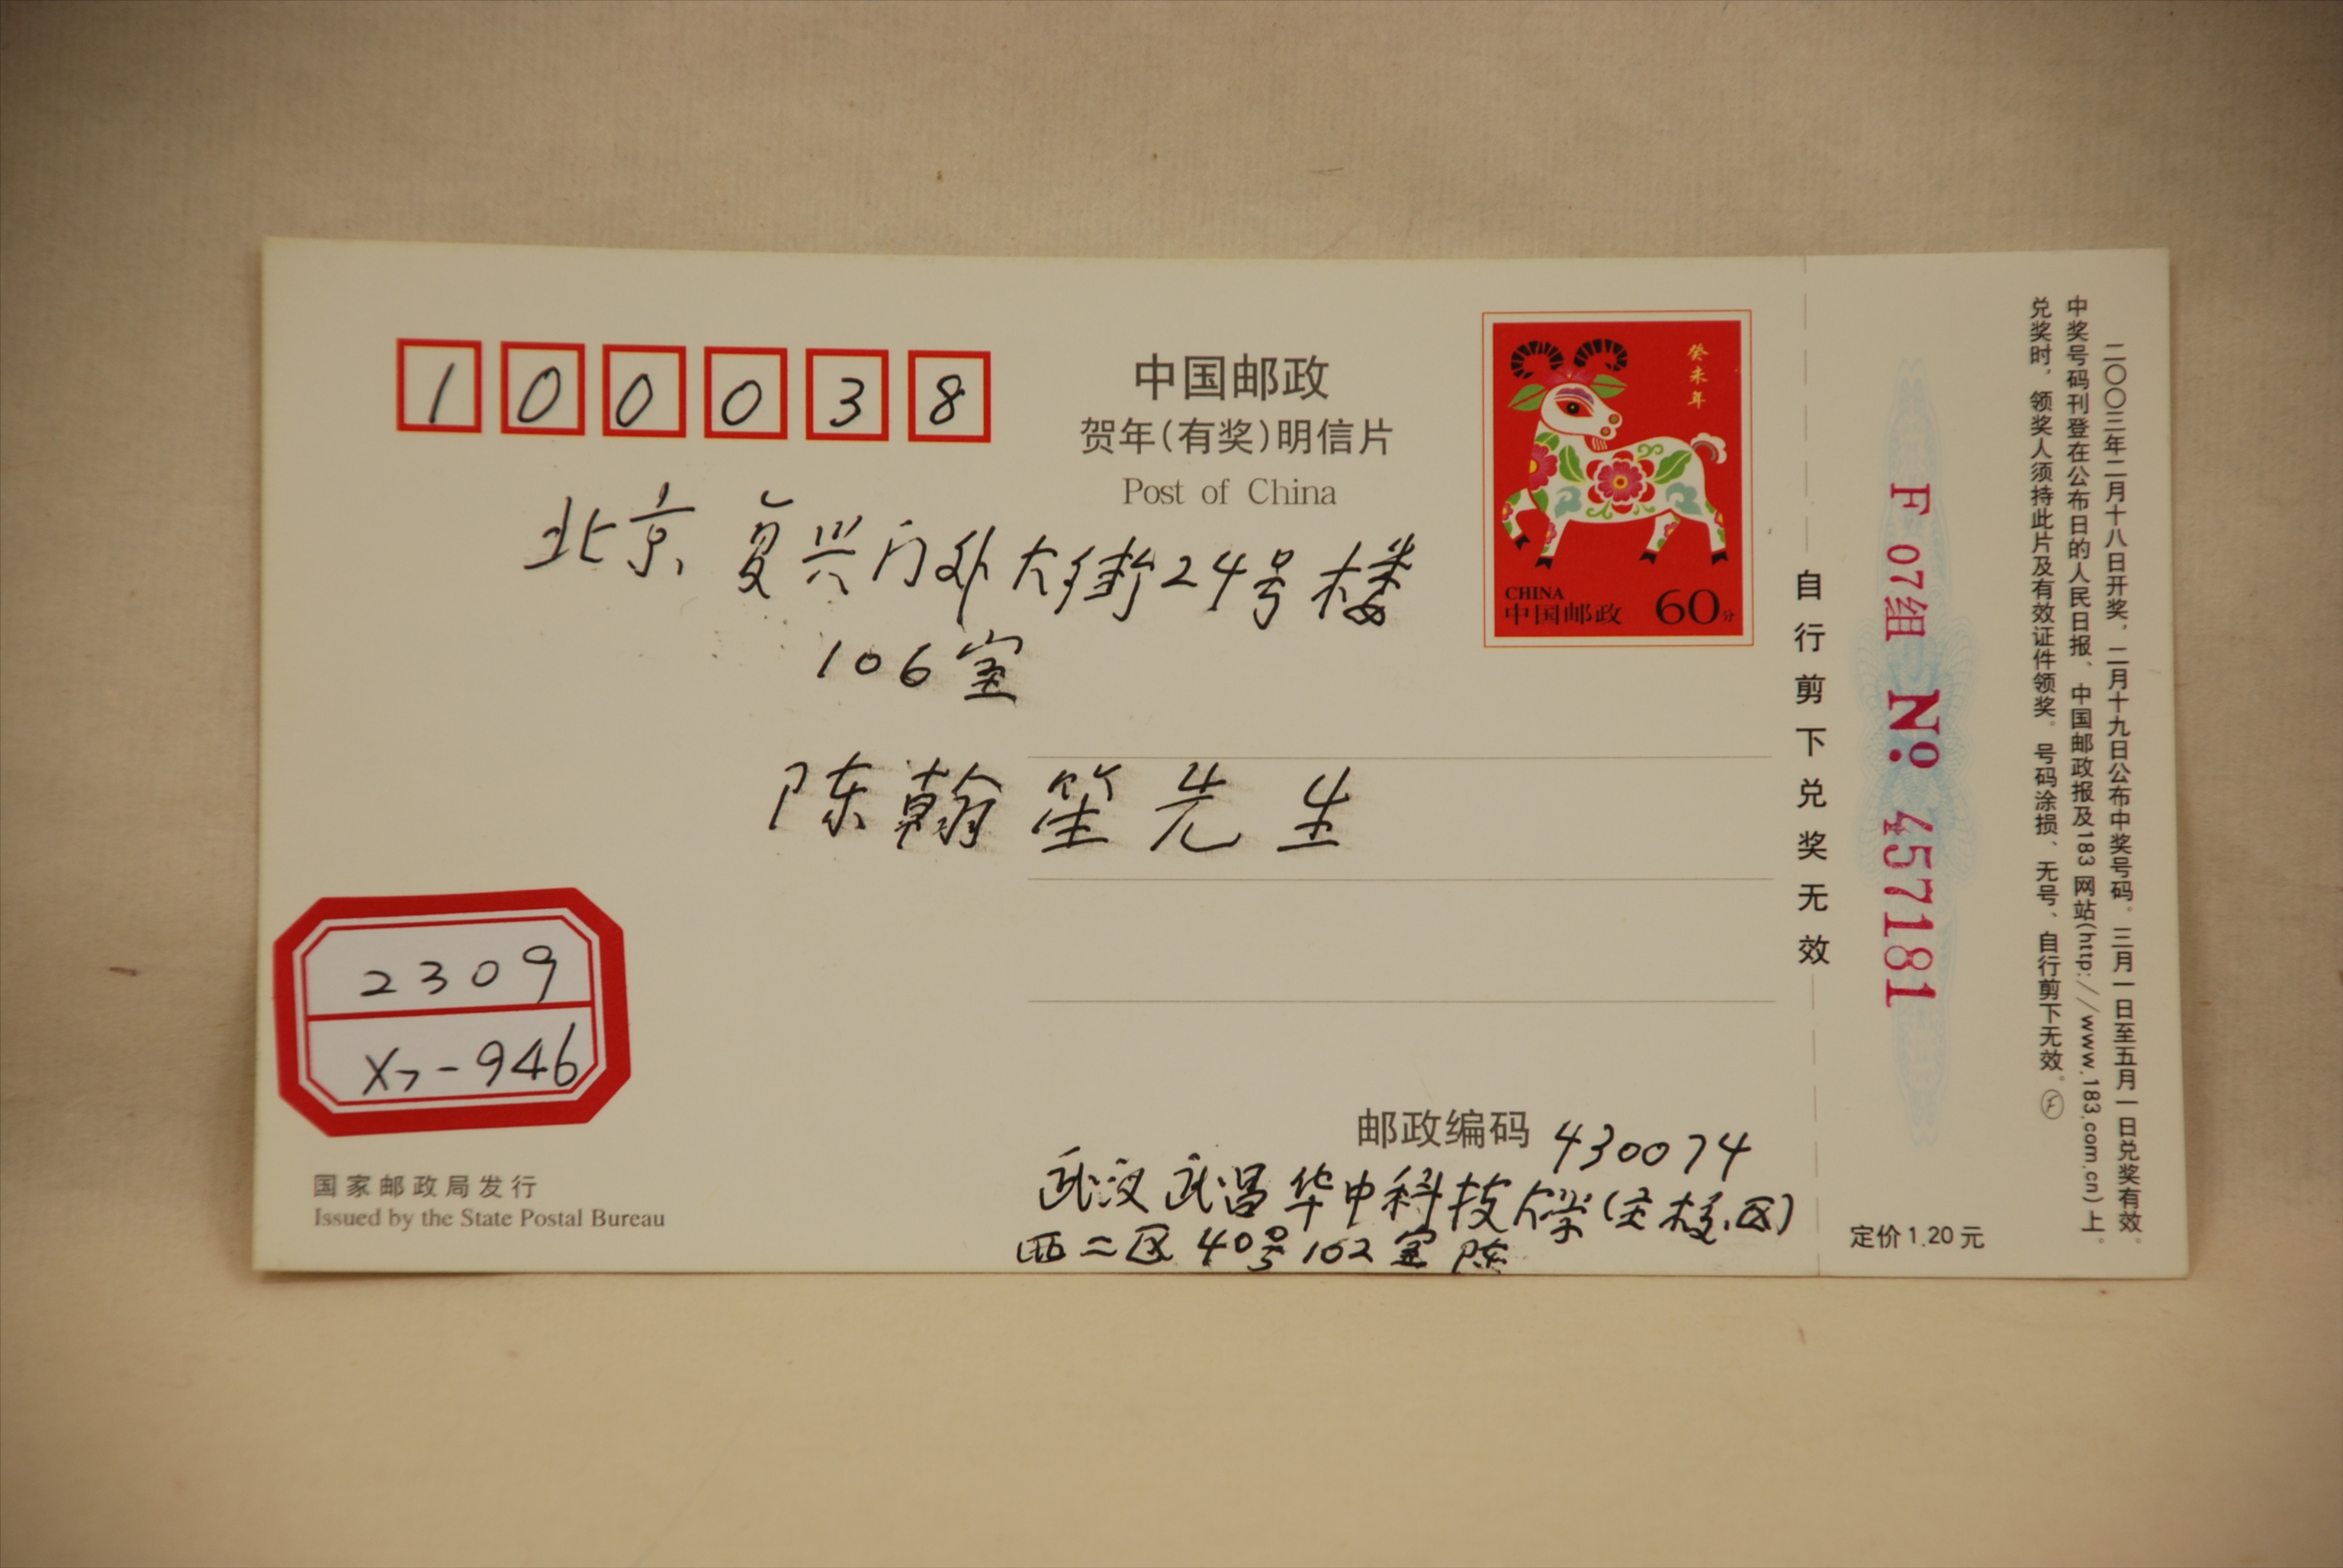 100038
中国邮政
贺年(有奖)明信片
Post of China
癸未年
CHINA
中国邮政 60分
北京复兴门外大街24号楼
106室
陈翰笙先生
2309
X7-946
国家邮政局发行
Issued by the State Postal Bureau
邮政编码 430074
武汉武昌华中科技大学(主校区)
西二区40号102室 陈
自行剪下兑奖无效
F 07组 No 457181
定价1.20元
二〇〇三年二月十八日开奖,二月十九日公布中奖号码。三月一日至五月一日兑奖有效。
中奖号码刊登在公布日的人民日报、中国邮政报及183网站(http://www.183.com.cn)上。
兑奖时,领奖人须持此片及有效证件领奖。号码涂损、无号、自行剪下无效。F